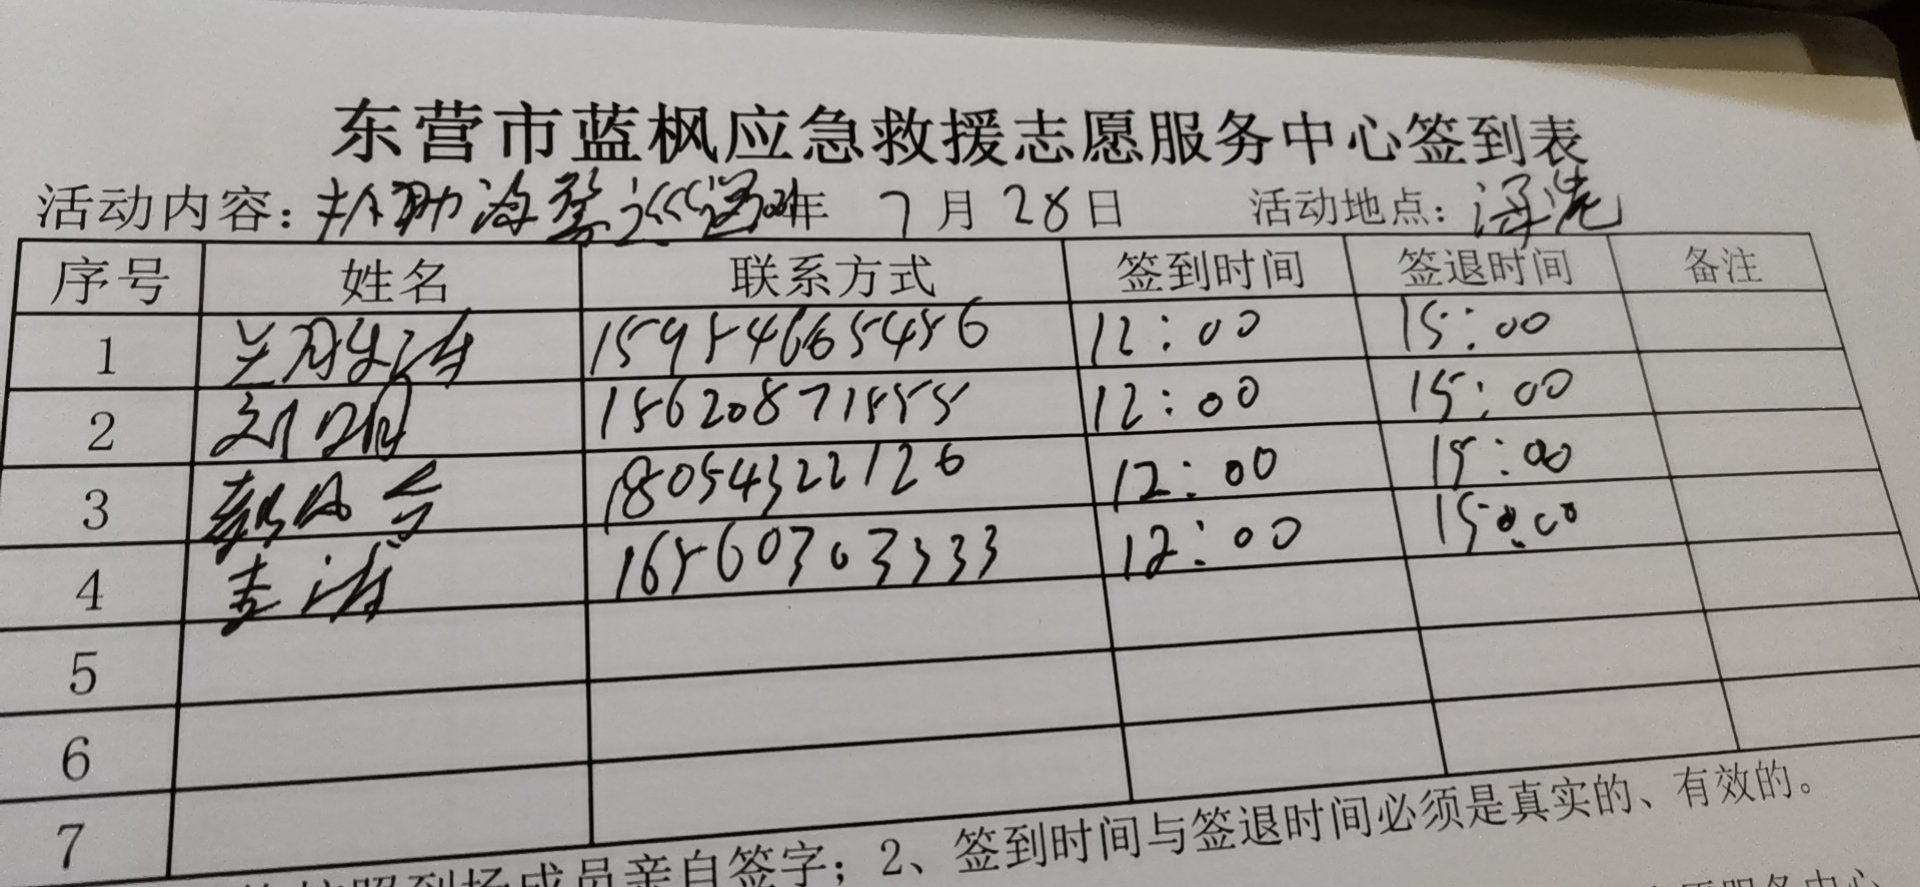 东营市蓝枫应急救援志愿服务中心签到表
活动内容：协助海警巡逻 年 7月28日 活动地点：
序号 姓名 联系方式 签到时间 签退时间 备注
1 15954665456 12:00 15:00
2 刘 15620871555 12:00 15:00
3 18054322126 12:00 15:00
4 李涛 16560303333 12:00 15:00
5
6
7
按照到场成员亲自签字；2、签到时间与签退时间必须是真实的、有效的。
志愿服务中心